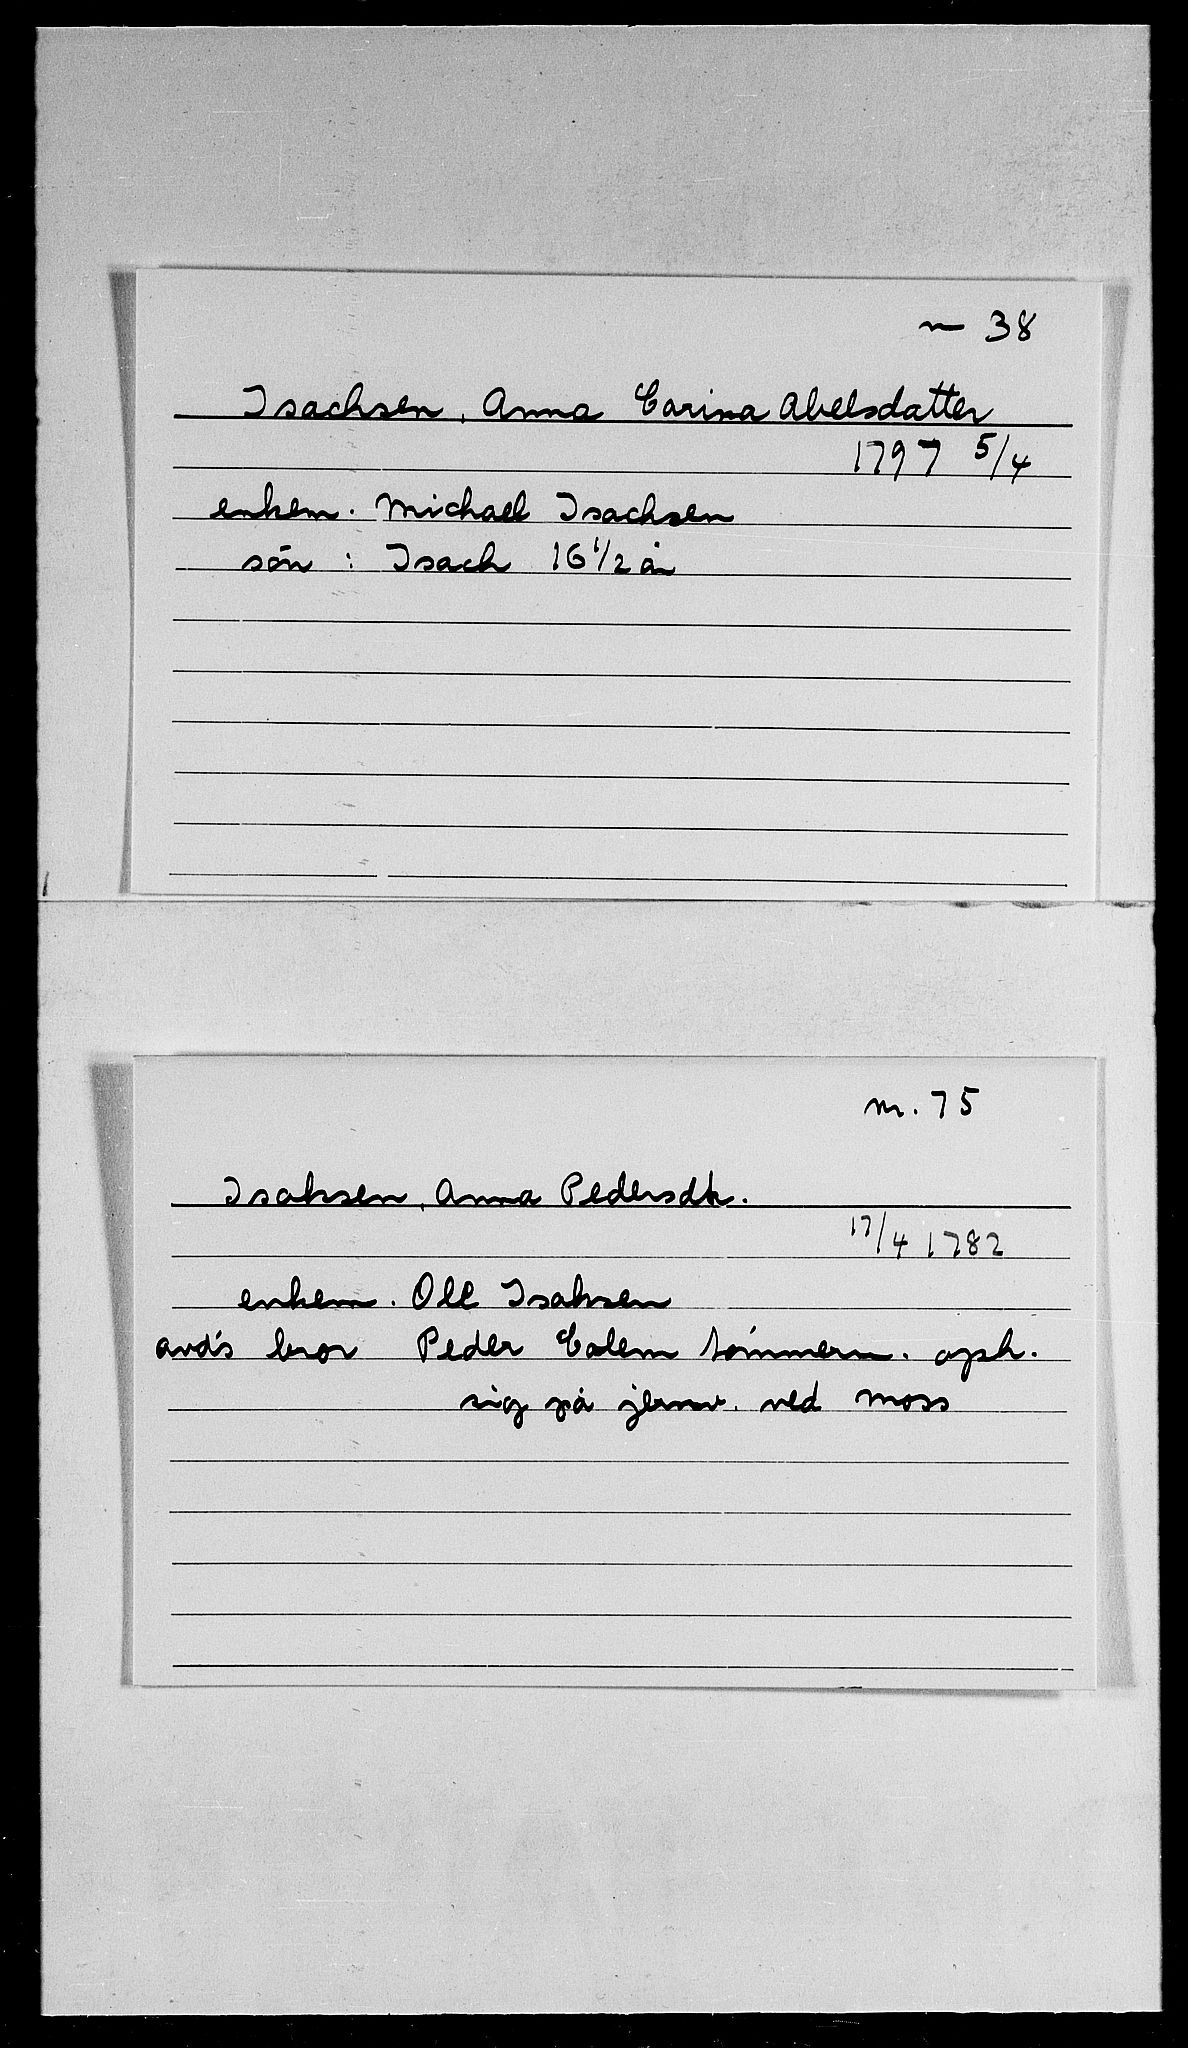 nr 38
Isachsen, Anna Carina Abelsdatter
1797 5/4
enkem. Michael Isachsen
sön : Isach 16 1/2 år
nr. 75
Isaksen, Anna Pedersdtr.
17/4 1782
enkem. Ole Isaksen
avd's bror Peder Calem tömmerm. oph.
sig på jernv. ved Moss